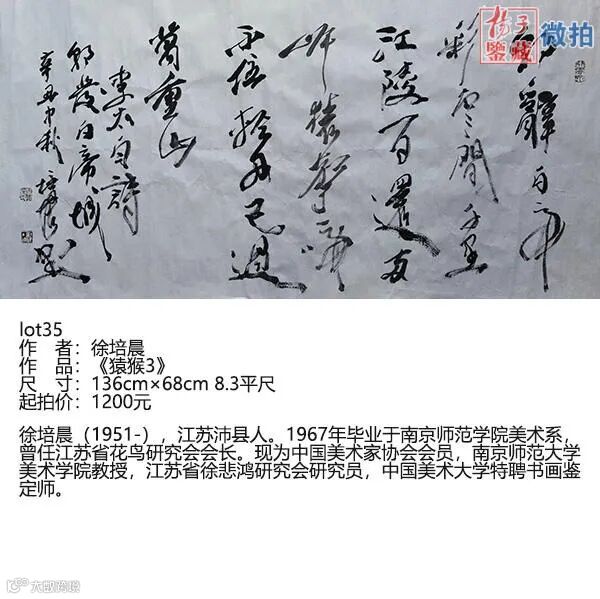 揚子
鑒藏
微拍
朝辭白帝
彩雲間千里
江陵百還兩
岸猿聲啼
不住輕舟已過
萬重山
李太白詩
朝發白帝城
辛丑中秋 培晨書
lot35
作 者：徐培晨
作 品：《猿猴3》
尺 寸：136cm×68cm 8.3平尺
起拍价：1200元
徐培晨（1951-），江苏沛县人。1967年毕业于南京师范学院美术系，
曾任江苏省花鸟研究会会长。现为中国美术家协会会员，南京师范大学
美术学院教授，江苏省徐悲鸿研究会研究员，中国美术大学特聘书画鉴
定师。
大数跨境